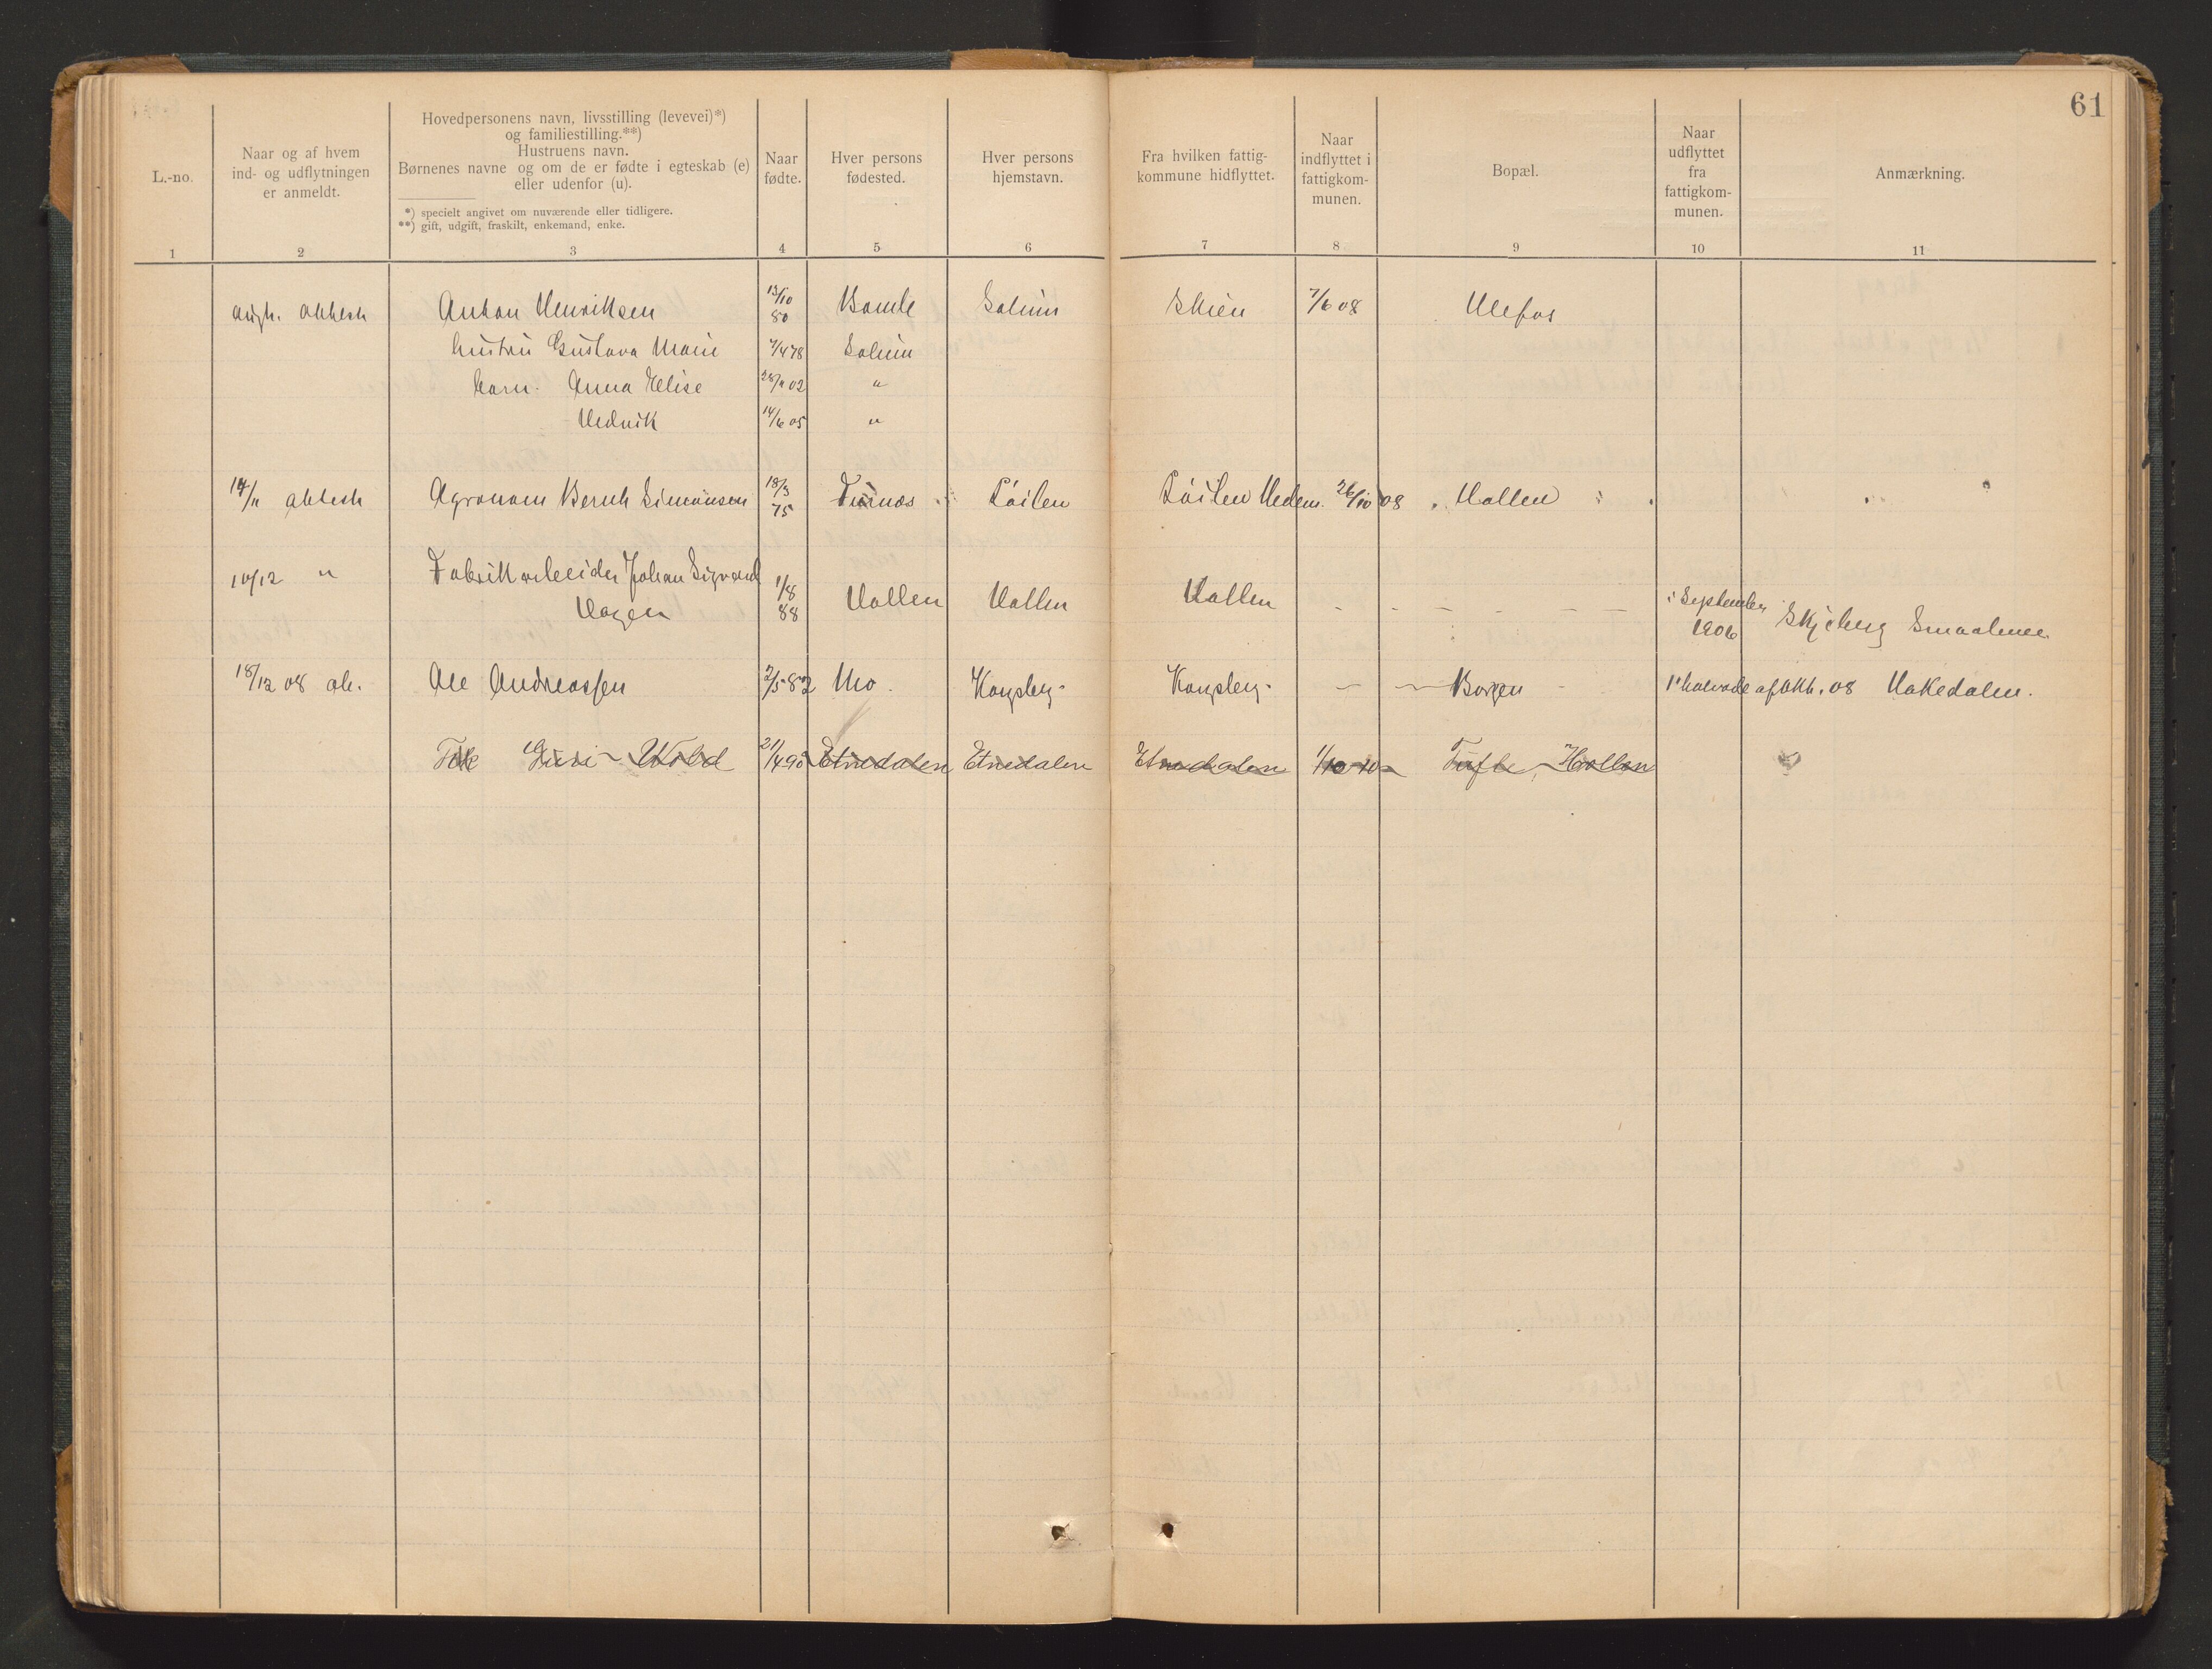 61
L.-no.
Naar og af hvem
ind- og udflytningen
er anmeldt.
Hovedpersonens navn, livsstilling (levevei)*)
og familiestilling.**)
Hustruens navn.
Børnenes navne og om de er fødte i egteskab (e)
eller udenfor (u).
*) specielt angivet om nuværende eller tidligere.
**) gift, udgift, fraskilt, enkemand, enke.
Naar
fødte.
Hver persons
fødested.
Hver persons
hjemstavn.
Fra hvilken fattig-
kommune hidflyttet.
Naar
indflyttet i
fattigkom-
munen.
Bopæl.
Naar
udflyttet
fra
fattigkom-
munen.
Anmærkning.
1 2 3 4 5 6 7 8 9 10 11
Anton Henriksen 13/10 80 Bamle Solum Skien 7/6 08 Ulefos
hustru Gustava Marie 7/4 78 Solum
barn. Anna Elise 28/11 02 "
Hedvik 14/6 05 "
14/11 attest Agronom Bernh Simonsen 18/3 75 Furnæs Løiten Løiten Hedem. 26/10 08 Hollen
10/12 " Fabrikarbeider Johan Sigvard
Hagen 1/8 88 Hollen Hollen Hollen - - - - - - i September 1906 Skjeberg Smaalenene
18/12 08 Ole Andreassen 2/5 82 Mo. Kongsberg Kongsberg - - Borgen 1' halvdel af Okt. 08 Hakedalen.
Guri 21/4 90 Etnedalen Etnedalen Etnedalen 1/10 10 Tufte, Hollen